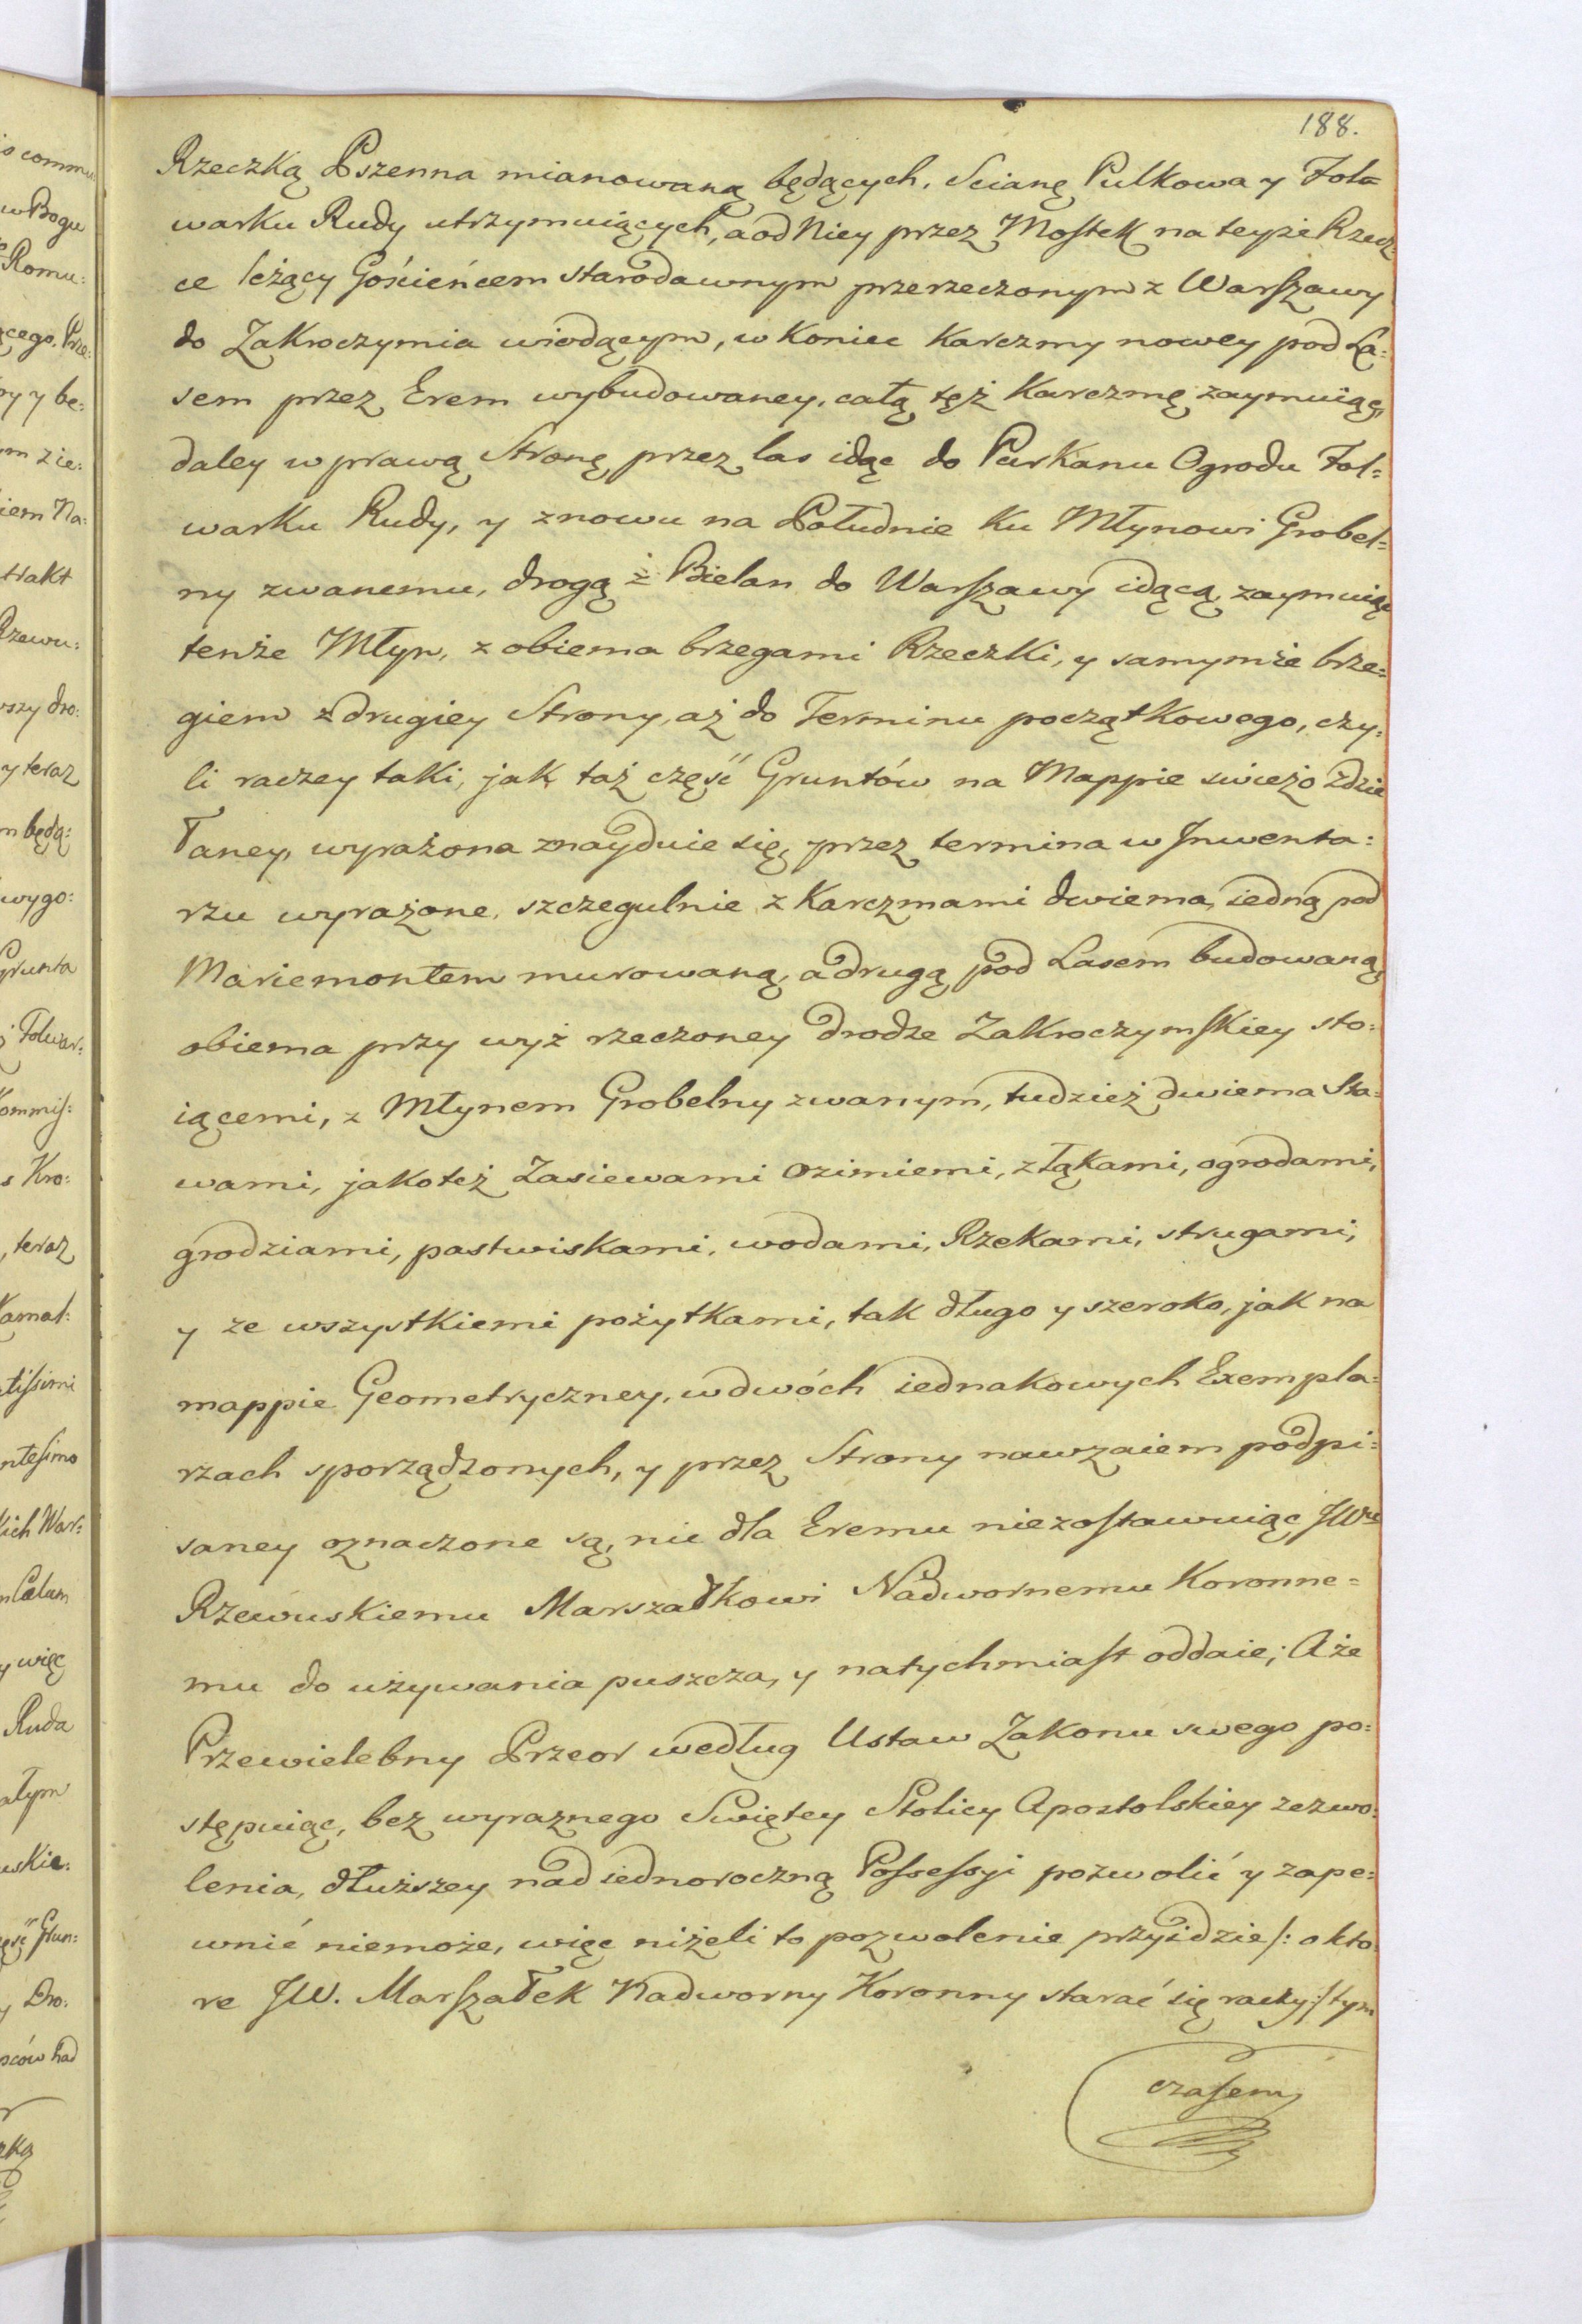 188.
Rzeczką Pszenna mianowaną będących, Scianę Pulkowa y Fol=
warku Rudy utrzymuiących, a od Niey przez Mostek na teyże Rzecz=
ce leżący Gościeńcem starodawnym przerzeczonym z Warszawy
do Zakroczymia wiodącym, w koniec Karczmy nowey pod La=
sem przez Erem wybudowaney, całą tęż Karczmę zaymuiąc,
daley w prawą Stronę przez las idąc do Parkanu Ogrodu Fol=
warku Rudy, y znowu na Południe ku Młynowi Grobel=
ny zwanemu, drogą z Bielan do Warszawy idącą, zaymuiąc
tenże Młyn, z obiema brzegami Rzeczki, y samymże brze=
giem z drugiey Strony, aż do Terminu początkowego, czy=
li raczey taki, jak taż część Gruntów na Mappie swieżo zdzia
łaney, wyrażona znayduie się, przez termina w Inwenta:
rzu wyrażone, szczegulnie z Karczmami dwiema, iedną pod
Mariemontem murowaną, a drugą pod Lasem budowaną,
obiema przy wyż rzeczoney drodze Zakroczymskiey sto:
iącemi, z Młynem Grobelny zwanym, tudzież dwiema Sta=
wami, jakoteż Zasiewami ozimiemi, z łąkami, ogrodami,
grodziami, pastwiskami, wodami, Rzekami, strugami,
y ze wszystkiemi pożytkami, tak długo y szeroko, jak na
mappie Geometryczney, w dwóch iednakowych Exempla=
rzach sporządzonych, y przez Strony nawzaiem podpi=
saney oznaczone są, nic dla Eremu niezostawuiąc JWu
Rzewuskiemu Marszałkowi Nadwornemu Koronne=
mu do używania puszcza, y natychmiast oddaie; A że
Przewielebny Przeor według Ustaw Zakonu swego po:
stępuiąc, bez wyraznego Swiętey Stolicy Apostolskiey zezwo:
lenia, dłuższey nad iednoroczną Possessyi pozwolić y zape:
wnić niemoże, więc niżeli to pozwolenie przyidzie /: o kto
re JW. Marszałek Nadworny Koronny starać się raczy :/ tym
czasem